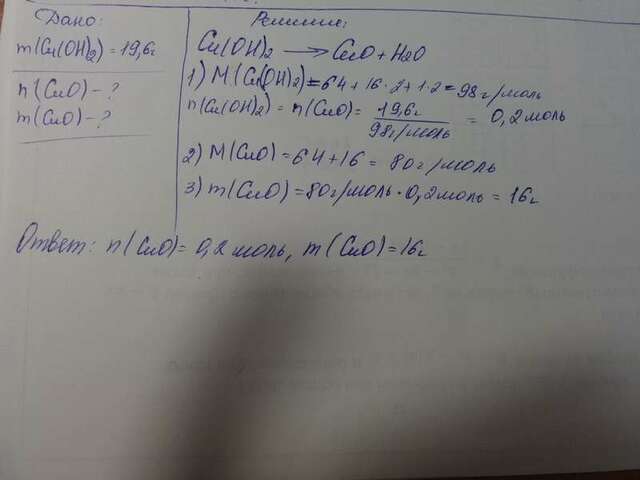 Дано:
m(Cu(OH)₂) = 19,6г
n(CuO) - ?
m(CuO) - ?
Решение:
Cu(OH)₂ → CuO + H₂O
1) M(Cu(OH)₂) = 64 + 16 · 2 + 1 · 2 = 98 г/моль
n(Cu(OH)₂) = n(CuO) = 19,6г / 98г/моль = 0,2 моль
2) M(CuO) = 64 + 16 = 80 г/моль
3) m(CuO) = 80г/моль · 0,2 моль = 16г
Ответ: n(CuO) = 0,2 моль, m(CuO) = 16г